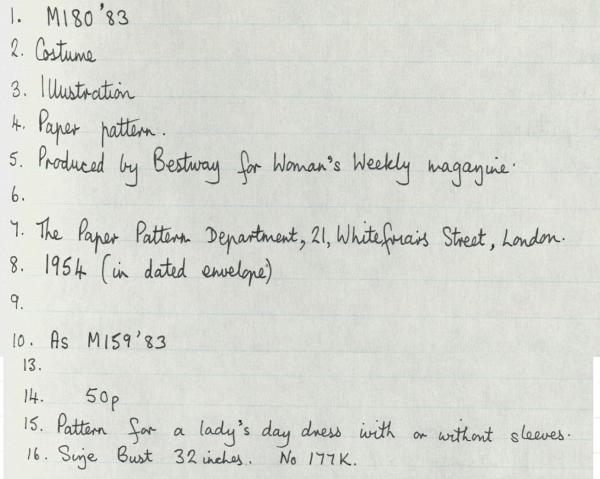 1. M180 '83
2. Costume
3. Illustration
4. Paper pattern.
5. Produced by Bestway for Woman's Weekly magazine.
6.
7. The Paper Pattern Department, 21, Whitefriars Street, London.
8. 1954 (in dated envelope)
9.
10. As M159 '83
13.
14. 50p
15. Pattern for a lady's day dress with or without sleeves.
16. Size Bust 32 inches. No 177K.